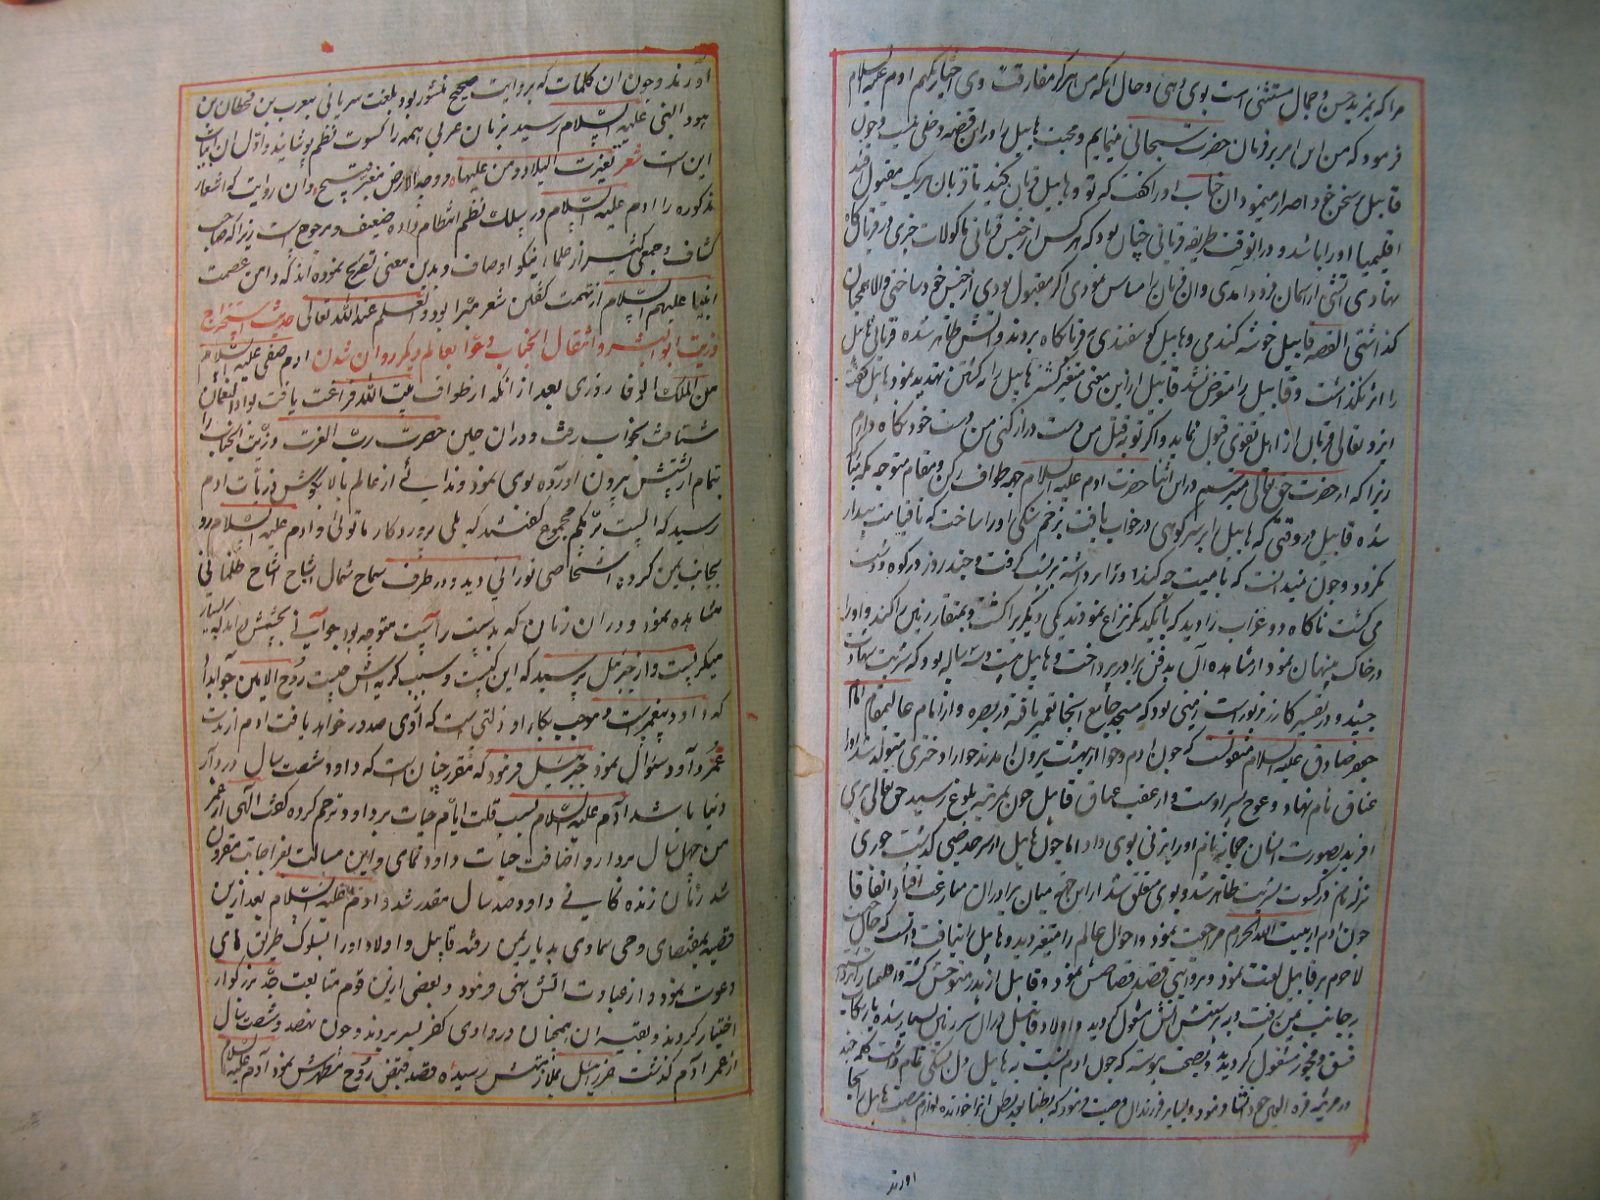 مرا که بمزید حسن و جمال مستثنی است بوی دهی و حال آنکه من هرگز مفارقت وی اختیار نکنم آدم علیه السلام
فرمود که من این امر بر فرمان حضرت سبحانی مینمایم و محبت هابیل را در این قضیه دخلی نیست و چون
قابیل بر سخن خود اصرار مینمود آن جناب او را گفت که تو و هابیل قربان کنید تا قربان هر یک مقبول افتد
اقلیمیا او را باشد و در آنوقت طریقه قربانی چنان بود که هر کس از جنس قربانی ماکولات چیزی در قربانگاه
نهادی آتشی از آسمان فرود آمدی و آن قربان را مساس نمودی اگر مقبول بودی از جنس خود ساختی و الا همچنان
گذاشتی القصه قابیل خوشه گندمی و هابیل گوسفندی بقربانگاه بردند و آتش ظاهر شده قربانی هابیل
را اثر نگذاشت و قابیل را متعرض نشد قابیل ازین معنی متغیر گشته هابیل را بکشتن تهدید نمود هابیل گفت
ایزد تعالی قربان از اهل تقوی قبول نماید و اگر تو بقتل من دست دراز کنی من دست خود نگاه دارم
زیرا که از حضرت حق تعالی میترسم در این اثنا حضرت آدم علیه السلام جهة طواف رکن و مقام متوجه مکه
شده قابیل در وقتی که هابیل بر سر کوهی در خواب یافت بزخم سنگی او را ساخت که تا قیامت بیدار
نگردد و چون نمیدانست که با میت چه کند او را برداشته برپشت گرفت و چند روز در کوه و دشت
می گشت ناگاه دو غراب را دید که با یکدیگر نزاع نمودند یکی دیگری را کشت و بمنقار زمین را کند و او را
در خاک پنهان نمود از مشاهده آن بدفن برادر پرداخت و هابیل بیست و سه ساله بود که شربت شهادت
چشید و در تفسیر کازر مزبور است زمینی بود که مسجد جامع آنجا تعمیر یافته در بصره و از امام عالیمقام امام
جعفر صادق علیه السلام منقولست که چون آدم و حوا از بهشت بیرون آمدند حوا را دختری متولد شد او را
عناق نام نهاد و عوج پسر اوست و از عقب عناق قابیل چون بمرتبه بلوغ رسید حق تعالی پری
آفرید بصورت انسان جمانه نام او را بزنی بوی داد اما چون هابیل از سر حد صبی گذشت حوری
نزله نام در کسوت بشریت ظاهر شد و بوی متعلق شد از این جهة میان برادران منازعت افتاد اتفاقا
چون آدم از بیت الله الحرام مراجعت نمود و احوال عالم را متغیر دید و هابیل را نیافت دانست که حال چیست
لاجرم بر قابیل لعنت نمود و بروایتی قصد قصاص نمود و قابیل از پدر متوحش گشته و اقلیما را برداشته
بجانب یمن رفت و بپرستش آتش مشغول گردید و اولاد قابیل در آن سرزمین بسیار شده بارتکاب
فسق و فجور مشغول گردید و بصحت پیوسته که چون آدم نسبت به هابیل دل بستگی تمام داشت کلمه چند
در مرثیه قره العین خود انشاء نمود و بسایر فرزندان وصیت نمود که بطنا بعد بطن آنرا خوانده لوازم مصیبت هابیل را بجا
آورند
آورند و چون آن کلمات که بروایت صحیح منثور بود بلغت سریانی بیعرب بن قحطان بن
هود النبی علیه السلام رسید بزبان عربی همه را کسوت نظم پوشانید و اول آن ابیات
این است شعر تغیرت البلاد و من علیها فوجه الارض مغبر قبیح و آن روایت که اشعار
مذکوره را آدم علیه السلام در سلک نظم انتظام داده ضعیف و مرجوح است زیرا که صاحب
کشاف و جمعی کثیر از علماء نیکو اوصاف بدین معنی تصریح نموده اند که دامن عصمت
انبیا علیهم السلام از تهمت گفتن شعر مبرا بود و العلم عند الله تعالی حدیث استخراج
ذریت ابو البشر و انتقال آنجناب و حوا بعالم دیگر روان شدن آدم صفی علیه السلام
من الملک الوفا روزی بعد از آنکه از طواف بیت الله فراغت یافت بوادی نعمان
شتافت بخواب رفت و در آن حین حضرت رب العزت ذریت آنجناب را
بتمام از پشتش بیرون آورده بوی نمود و ندایی از عالم بالا بگوش ذریات آدم
رسید که الست بربکم مجموع گفتند که بلی پروردگار ما توئی و آدم علیه السلام رو
بجانب یمین کرده اشخاصی نورانی دید و در طرف شمال اشباح ظلمانی
مشاهده نمود و در آن زمان که بدست راست متوجه بود جوانی بچشمش درآمد که بسیار
میگریست و از جبرئیل پرسید که این کیست و سبب گریه اش چیست روح الامین جواب داد
که داود پیغمبر است و موجب بکاء او ذلتی است که از وی صدور خواهد یافت آدم از مدت
عمر داود سئوال نمود جبرئیل فرمود که مقرر چنان است که داود شصت سال در دار
دنیا باشد آدم علیه السلام بسبب قلت ایام حیات بر داود ترحم کرده گفت الهی از عمر
من چهل سال بردار و اضافت حیات داود نمای و این مسالت بعز اجابت مقرون
شد زمان زندگانی داود صد سال مقدر شد و آدم علیه السلام بعد ازین
قضیه بمقتضای وحی سماوی بدیار یمن رفته قابیل و اولاد او را بسلوک طریق هدی
دعوت نمود و از عبادت آتش نهی فرمود و بعضی ازین قوم متابعت جد بزرگوار
اختیار کردند و بقیه آن همچنان در وادی کفر بسر بردند و چون نهصد و شصت سال
از عمر آدم گذشت عزرائیل بملازمتش رسیده قصد قبض روح مطهرش نمود آدم علیه السلام